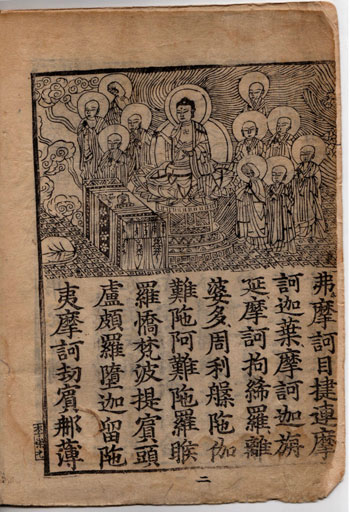 弗摩訶目揵連摩
訶迦葉摩訶迦旃
延摩訶拘絺羅離
婆多周利槃陁伽
難陁阿難陁羅睺
羅憍梵波提賓頭
盧頗羅墮迦留陁
夷摩訶劫賓那薄
二